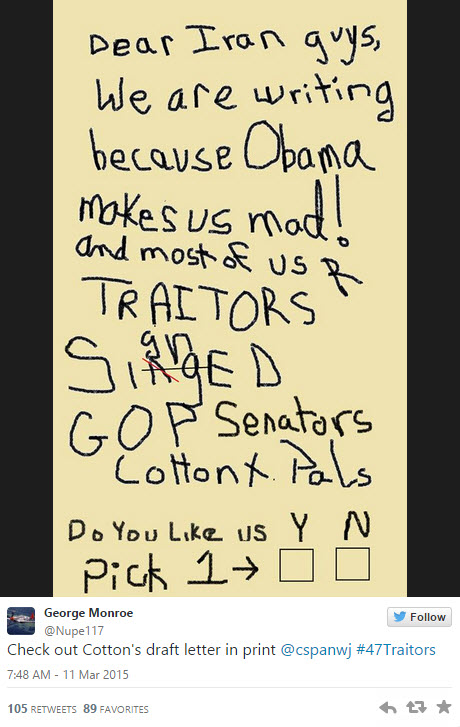 Dear Iran guys,
We are writing
because Obama
makes us mad!
and most of us R
TRAITORS
gn
SingED
GOP Senators
Cotton & Pals
Do You Like us Y N
Pick 1→
George Monroe
@Nupe117
Follow
Check out Cotton's draft letter in print @cspanwj #47Traitors
7:48 AM - 11 Mar 2015
105 RETWEETS 89 FAVORITES